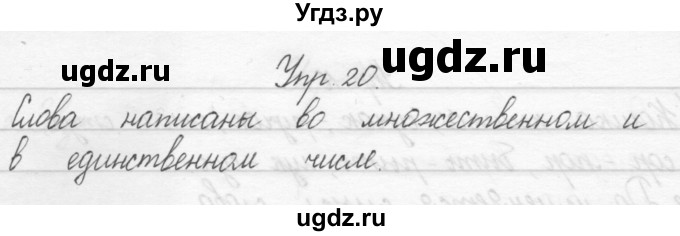 Угдз.ру
ugdz.ru
ugdz.ru
Упр. 20.
Слова написаны во множественном и
в единственном числе.
ugdz.ru
ugdz.ru
ugdz.ru